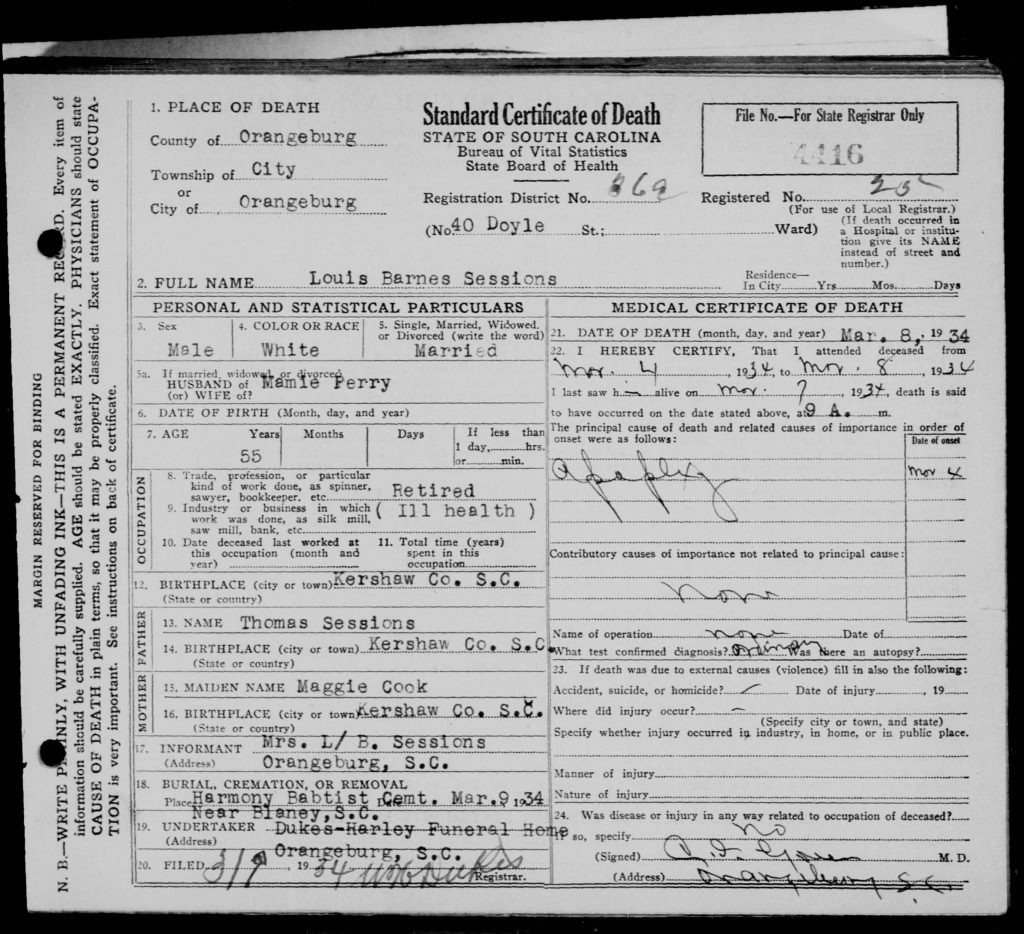 MARGIN RESERVED FOR BINDING
N. B.—WRITE PLAINLY, WITH UNFADING INK—THIS IS A PERMANENT RECORD. Every item of
information should be carefully supplied. AGE should be stated EXACTLY. PHYSICIANS should state
CAUSE OF DEATH in plain terms, so that it may be properly classified. Exact statement of OCCUPA-
TION is very important. See instructions on back of certificate.
Standard Certificate of Death
STATE OF SOUTH CAROLINA
Bureau of Vital Statistics
State Board of Health
File No.—For State Registrar Only
4416
1. PLACE OF DEATH
County of Orangeburg
Township of City
or
City of Orangeburg
Registration District No.
Registered No.
(For use of Local Registrar.)
(No. 40 Doyle St.; Ward)
(If death occurred in
a Hospital or institu-
tion give its NAME
instead of street and
number.)
2. FULL NAME Louis Barnes Sessions
Residence—
In City Yrs. Mos. Days
PERSONAL AND STATISTICAL PARTICULARS
3. Sex
Male
4. COLOR OR RACE
White
5. Single, Married, Widowed,
or Divorced (write the word)
Married
5a. If married, widowed, or divorced
HUSBAND of Mamie Perry
(or) WIFE of?
6. DATE OF BIRTH (Month, day, and year)
7. AGE Years Months Days If less than
1 day, hrs.
or min.
55
OCCUPATION
8. Trade, profession, or particular
kind of work done, as spinner,
sawyer, bookkeeper. etc. Retired
9. Industry or business in which
work was done, as silk mill,
saw mill, bank, etc. ( Ill health )
10. Date deceased last worked at
this occupation (month and
year)
11. Total time (years)
spent in this
occupation
12. BIRTHPLACE (city or town) Kershaw Co. S.C.
(State or country)
FATHER
13. NAME Thomas Sessions
14. BIRTHPLACE (city or town) Kershaw Co. S.C.
(State or country)
MOTHER
15. MAIDEN NAME Maggie Cook
16. BIRTHPLACE (city or town) Kershaw Co. S.C.
(State or country)
17. INFORMANT Mrs. L/ B. Sessions
(Address) Orangeburg, S.C.
18. BURIAL, CREMATION, OR REMOVAL
Place Harmony Babtist Cemt. Mar.9 1934
Near Blaney,S.C.
19. UNDERTAKER Dukes-Harley Funeral Home
(Address) Orangeburg, S.C.
20. FILED 3/9, 1934
Registrar.
MEDICAL CERTIFICATE OF DEATH
21. DATE OF DEATH (month, day, and year) Mar. 8, 1934
22. I HEREBY CERTIFY, That I attended deceased from
Mar. 4, 1934, to Mar. 8, 1934
I last saw h alive on Mar. 7, 1934, death is said
to have occurred on the date stated above, at 9 A. m.
The principal cause of death and related causes of importance in order of
onset were as follows:
Date of onset
Apoplexy Mar 4
Contributory causes of importance not related to principal cause:
None
Name of operation none Date of
What test confirmed diagnosis? Was there an autopsy?
23. If death was due to external causes (violence) fill in also the following:
Accident, suicide, or homicide? Date of injury, 19
Where did injury occur?
(Specify city or town, and state)
Specify whether injury occurred in industry, in home, or in public place.
Manner of injury
Nature of injury
24. Was disease or injury in any way related to occupation of deceased?
If so, specify No
(Signed) M. D.
(Address) Orangeburg S.C.